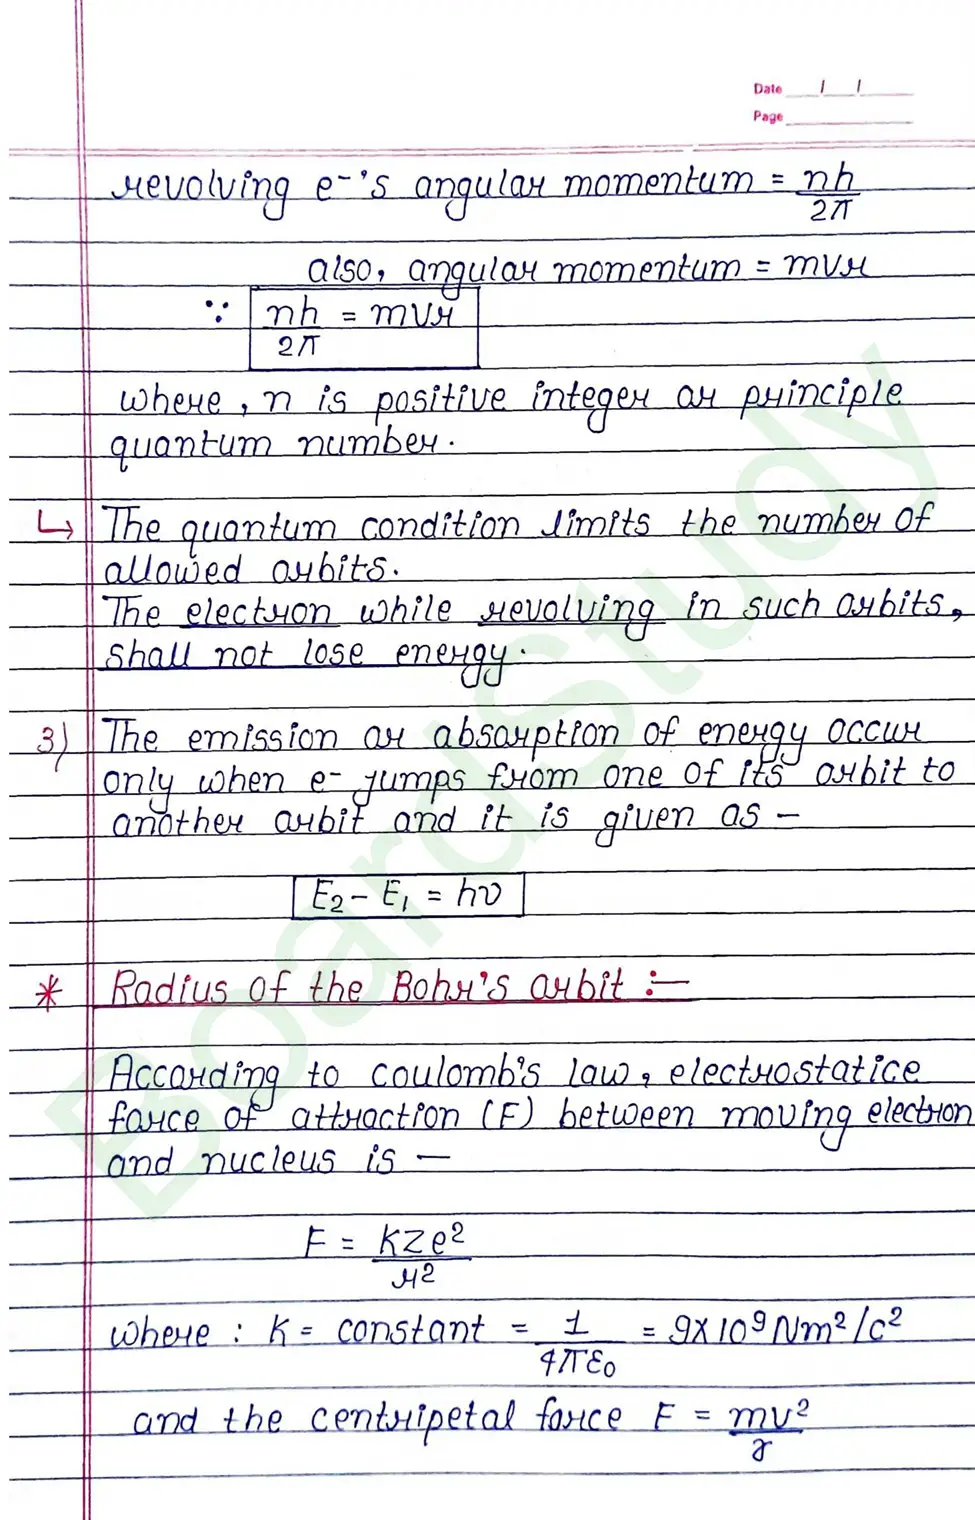 Date / /
Page
revolving e⁻'s angular momentum = nh/2π
also, angular momentum = mvr
∵ nh/2π = mvr
where, n is positive integer or principle
quantum number.
↳ The quantum condition limits the number of
allowed orbits.
The electron while revolving in such orbits,
shall not lose energy.
3) The emission or absorption of energy occur
only when e⁻ jumps from one of its orbit to
another orbit and it is given as –
E₂ - E₁ = hν
* Radius of the Bohr's orbit :–
According to coulomb's law, electrostatice
force of attraction (F) between moving electron
and nucleus is –
F = KZe²/r²
where : K = constant = 1/4πε₀ = 9X10⁹ Nm²/c²
and the centripetal force F = mv²/r
BoardStudy